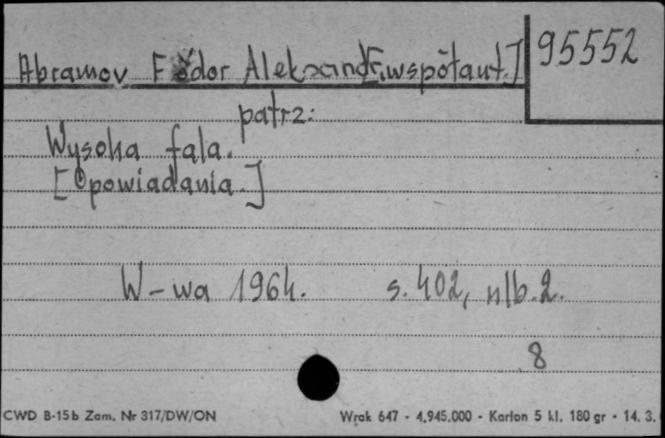 Abramov Fëdor Aleksandr. [współaut.] 95552
patrz:
Wysoka fala.
[Opowiadania.]
W-wa 1964. s. 402, nlb. 2.
8
CWD B-15b Zam. Nr 317/DW/ON Wrak 647 - 4.945.000 - Karton 5 kl. 180 gr - 14. 3.